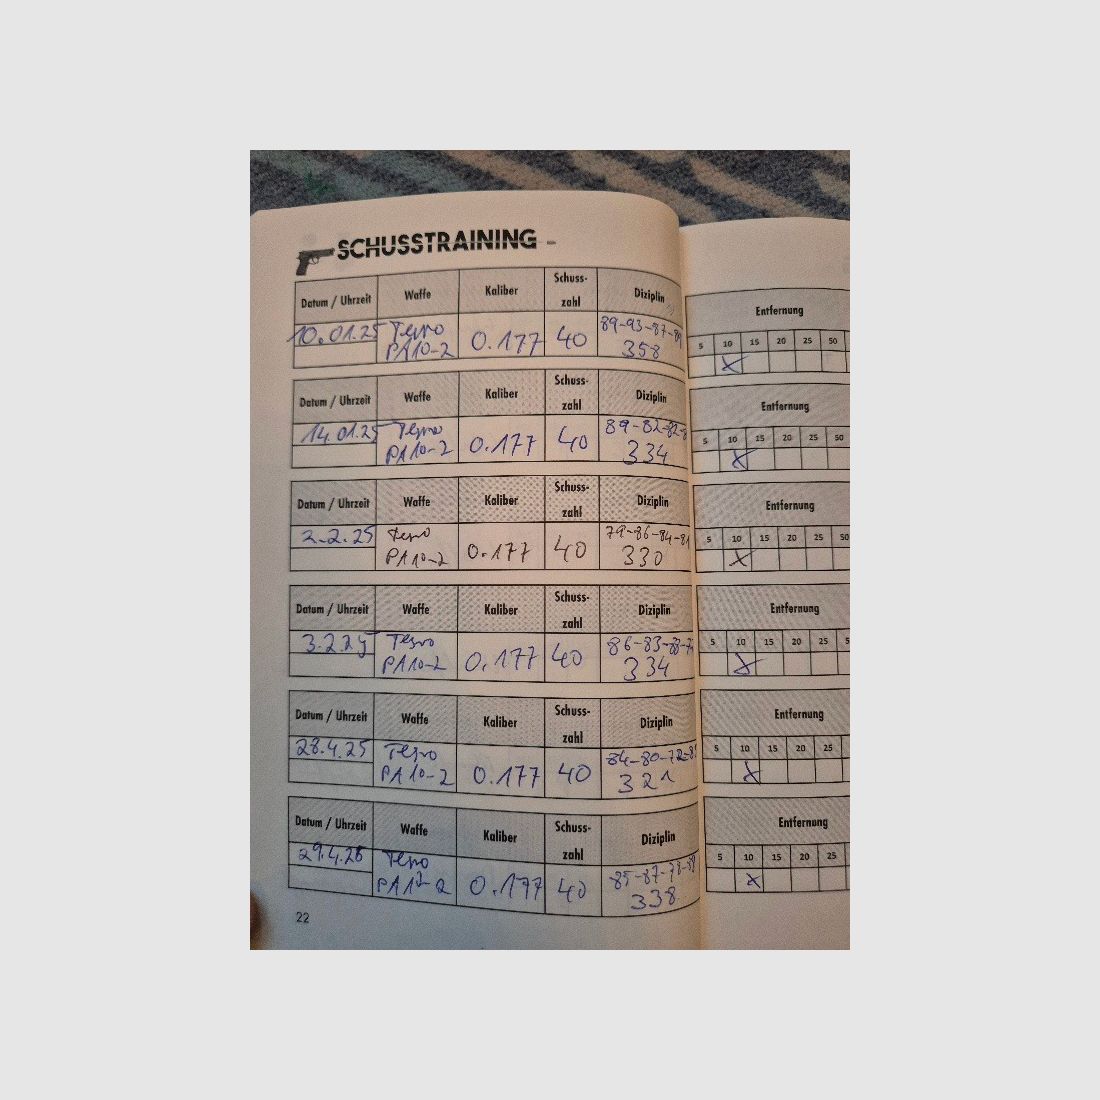 SCHUSSTRAINING -
Datum / Uhrzeit Waffe Kaliber Schuss-zahl Diziplin
10.01.25 Tesro PA10-2 0.177 40 89-93-87-89
358
Entfernung
5 10 15 20 25 50
X
Datum / Uhrzeit Waffe Kaliber Schuss-zahl Diziplin
14.01.25 Tesro PA10-2 0.177 40 89-82-82-8
334
Entfernung
5 10 15 20 25 50
X
Datum / Uhrzeit Waffe Kaliber Schuss-zahl Diziplin
2.2.25 Tesro PA10-2 0.177 40 79-86-84-81
330
Entfernung
5 10 15 20 25 50
X
Datum / Uhrzeit Waffe Kaliber Schuss-zahl Diziplin
3.2.25 Tesro PA10-2 0.177 40 86-83-88-7
334
Entfernung
5 10 15 20 25 5
X
Datum / Uhrzeit Waffe Kaliber Schuss-zahl Diziplin
28.4.25 Tesro PA10-2 0.177 40 84-80-72-8
321
Entfernung
5 10 15 20 25
X
Datum / Uhrzeit Waffe Kaliber Schuss-zahl Diziplin
29.4.25 Tesro 0.177 40 85-87-78-8
338
Entfernung
5 10 15 20 25
X
22